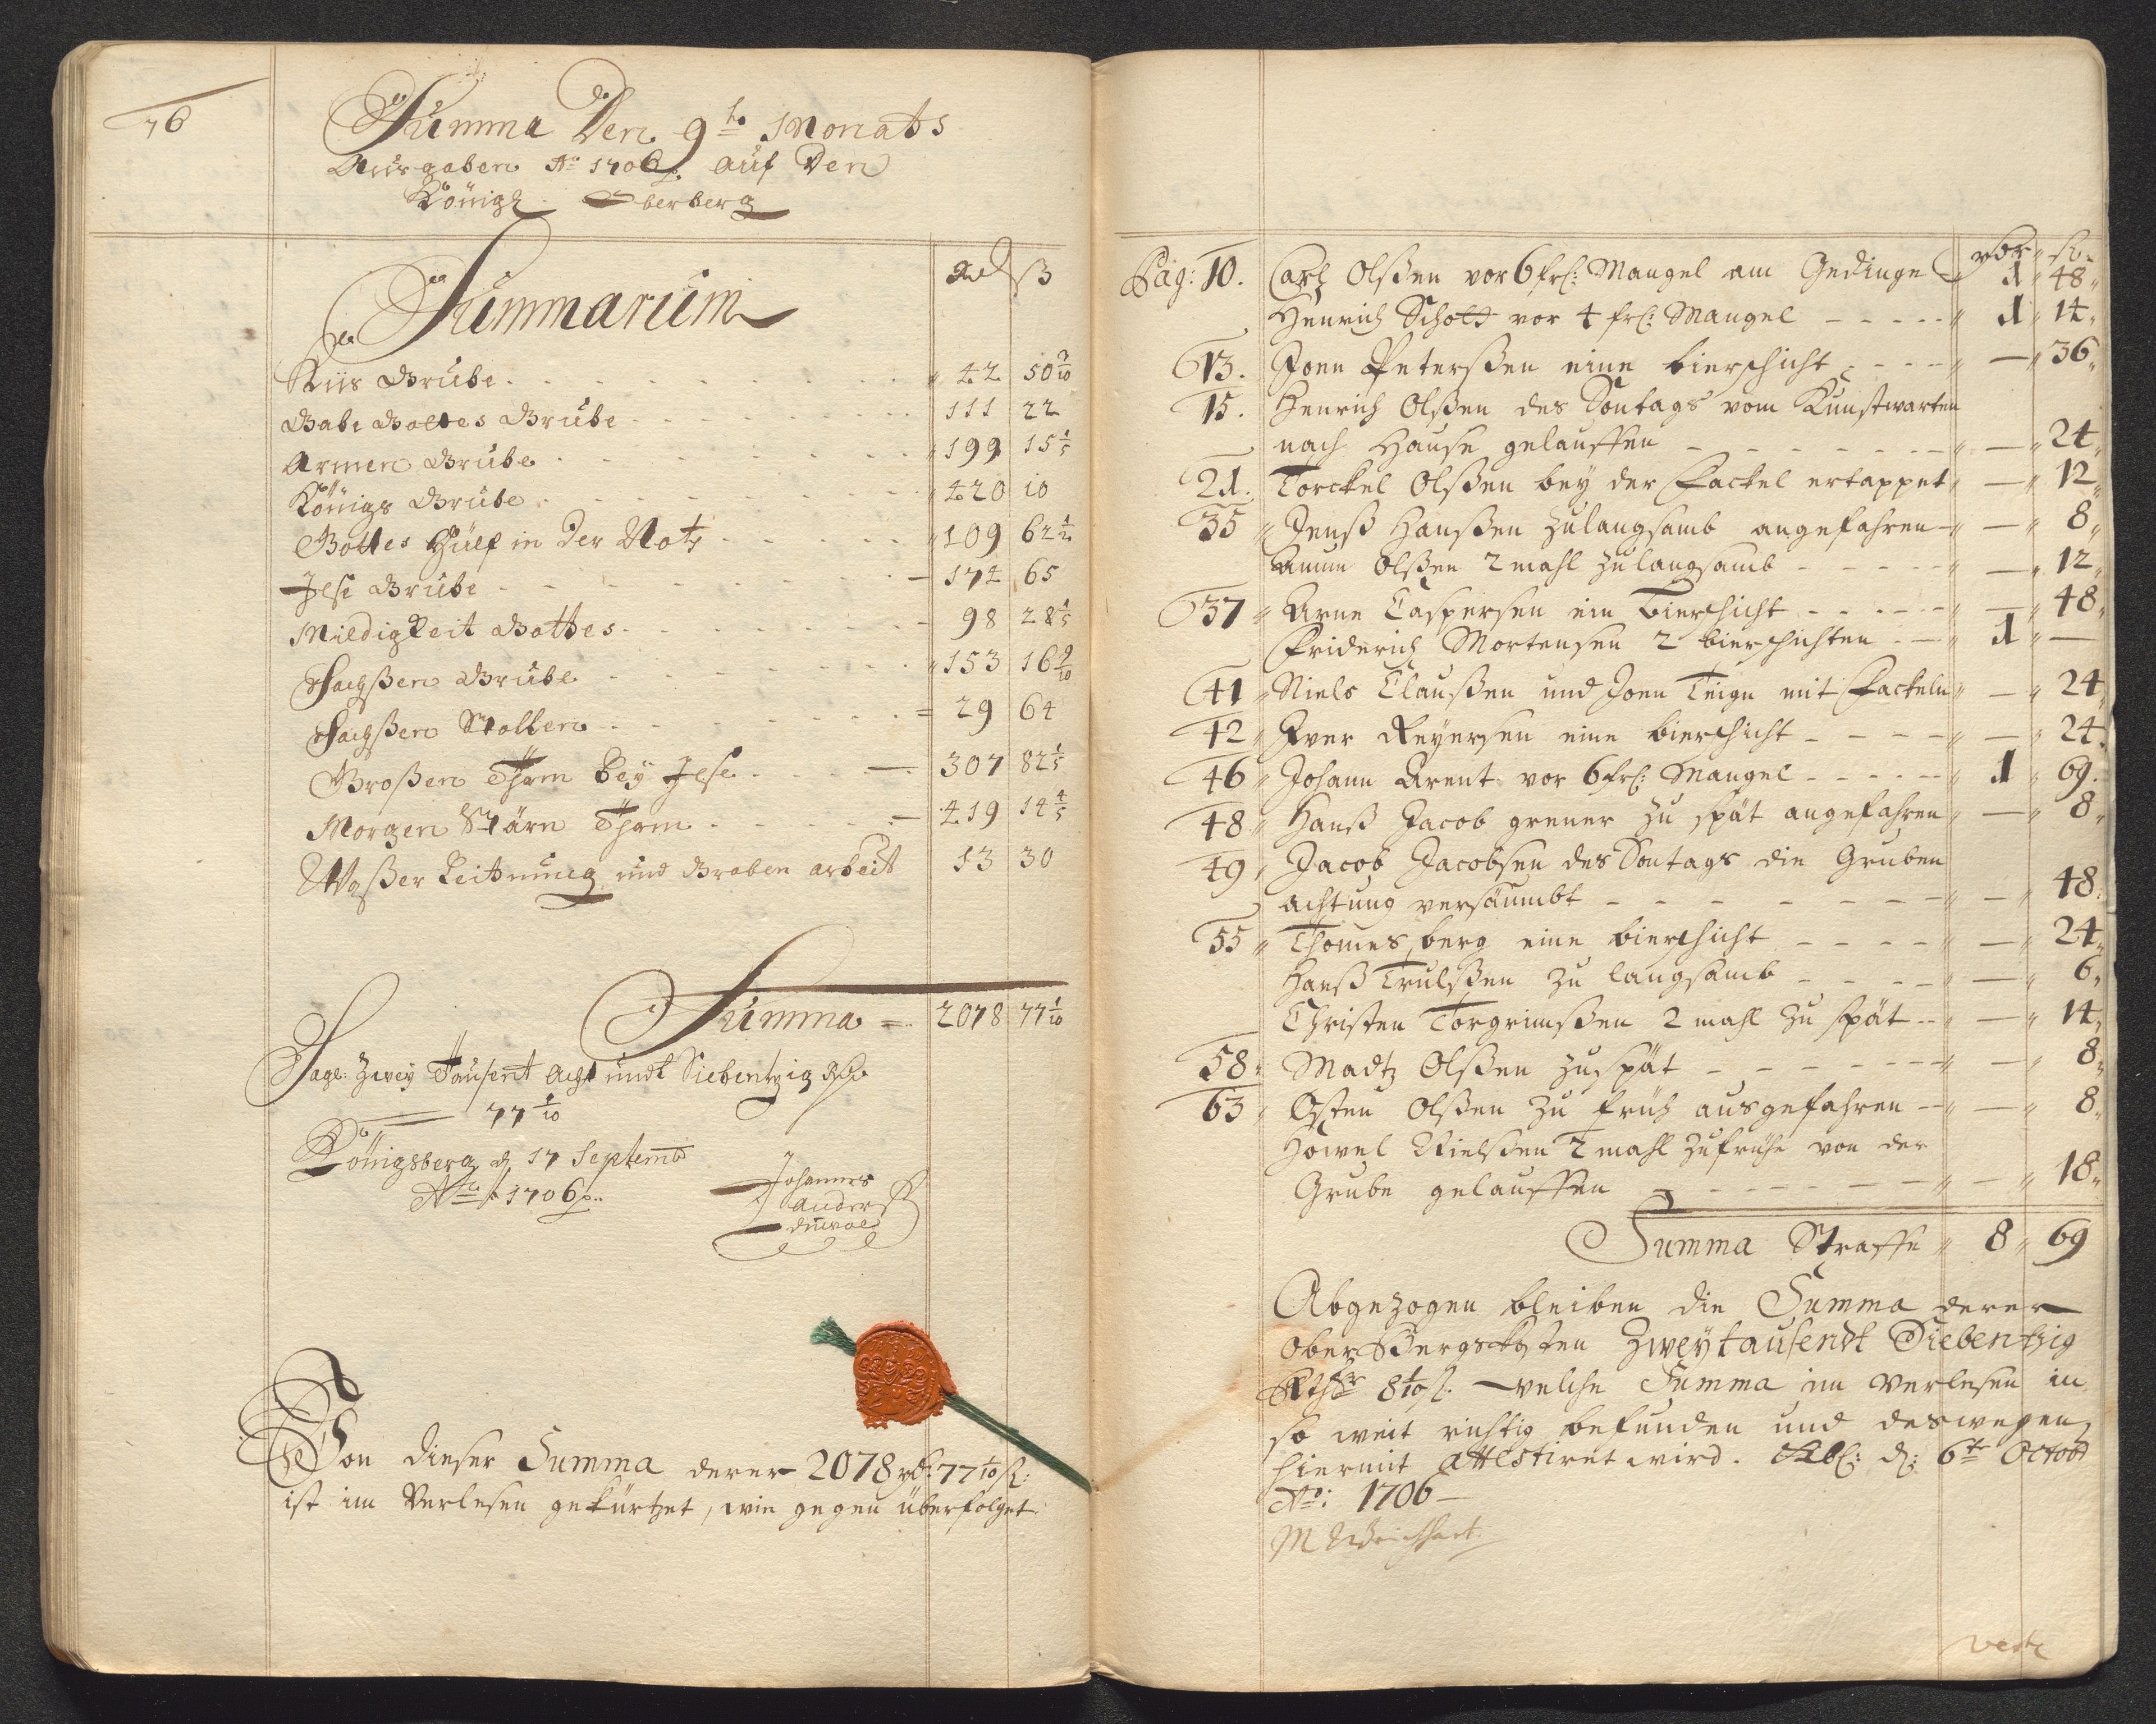 76
Summa Den 9to Monats
Ausgaben Ao 1706 auf Den
Königl. Oberberg
Rdl ß
Summarum
Königs Grube 420 10
Haus Grube 42 50 7/10
Gabe Gottes Grube 111 22
Armen Grube 199 15 1/5
Gottes Hülf in der Noth 109 62 1/2
Jese Grube 174 65
Mildigkeit Gottes 98 28 1/5
Sachßen Grube 153 16 9/10
Sachßen Stollen 29 64
Großen Thom bey Jese 307 82 1/5
Morgen Stärn Thom 419 14 4/5
Waßer Leitnung und Graben arbeit 13 30
Summa 2078 77 1/10
Sage: Zwey Tausent Acht undt Siebentzig
77 1/10
Königsberg d 17 Septemb
Ao 1706
Johannes
Anders
Von dieser Summa derer 2078 rd: 77 1/10 ß:
ist im Verlesen gekürtzet, wie gegen über folget
Pag: 10. Carl Olßen vor 6 frl: Mangel am Gedinge 1 48
Henrich Schott vor 4 frl: Mangel 1 14
13. Joen Peterßen eine bierschicht 36
15. Henrich Olßen des Sontags vom Kunstwarten
nach Hause gelauffen 24
21. Torckel Olßen bey der Fackel ertappet 12
35 Jenß Hanßen zulangsamb angefahren 8
Amun Olßen 2 mahl zulangsamb 12
37 Arne Caspersen ein Bierschicht 48
Friderich Mortensen 2 bierschichten 1
41 Niels Claußen und Joen Teign mit Fackeln 24
42 Iver Reyersen eine bierschicht 24
46 Johann Arent vor 6 frl: Mangel 1 69
48 Hanß Jacob grener zu spät angefahren 8
49 Jacob Jacobsen des Sontags die Gruben
achtung versäumbt 48
55 Thomes berg eine bierschicht 24
Hanß Trulßen zu langsamb 6
Christen Torgrimßen 2 mahl zu spät 14
58 Madtz Olßen zu spät 8
63 Osten Olßen zu früh ausgefahren 8
Howel Nielßen 2 mahl zufrühe von der
Grube gelauffen 18
Summa Straffe 8 69
Abgezogen bleiben die Summa derer
Ober Bergskosten Zweytausendt Siebentzig
Rthlr 8 1/10 ß. welche Summa im Verlesen in
so weit richtig befunden und deswegen
hiermit attestiret wird. d: 6te Octob
Ao: 1706